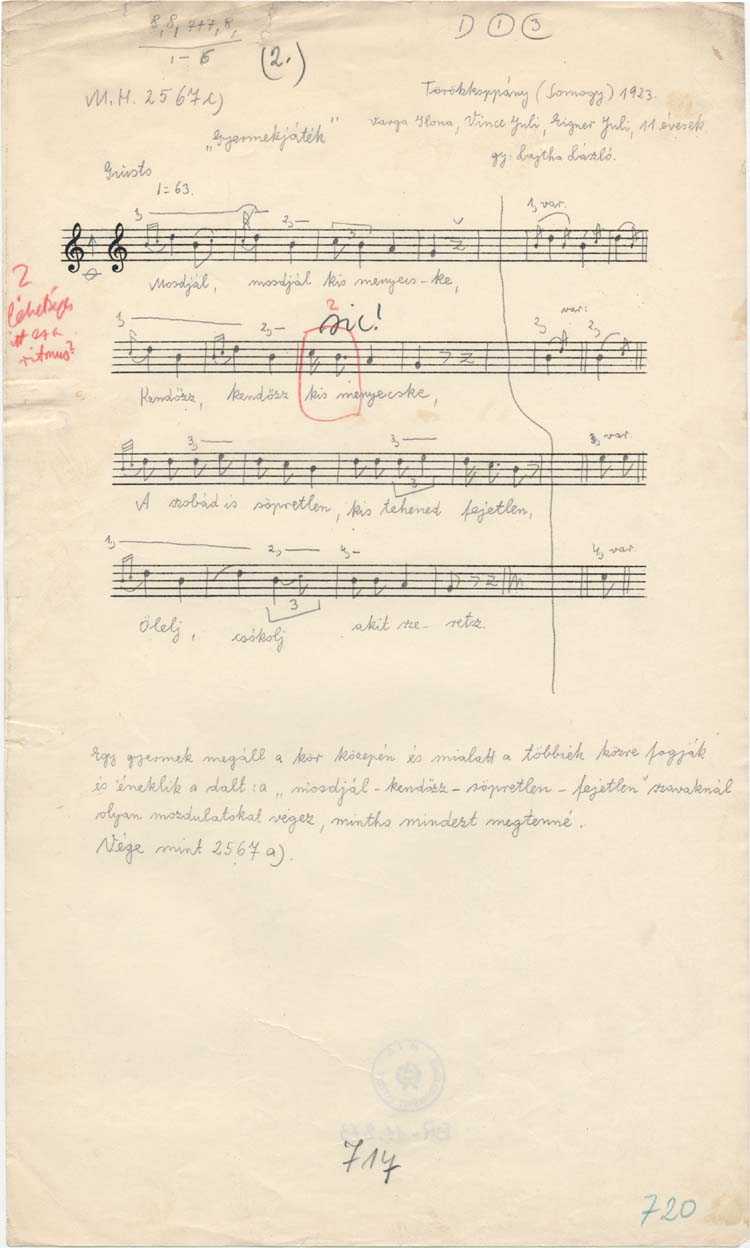 8, 8, 7+7, 8,
1 – 6
(2.)
D 1 3
M.H. 2567c)
Törökkoppány (Somogy) 1923.
Varga Ilona, Vince Juli, Eigner Juli, 11 évesek
gy: Lajtha László.
„Gyermekjáték"
Giusto
= 63.
1, 2, 3 1, var.
Mosdjál, mosdjál kis menyecs-ke,
2
lehetséges
itt ez a
ritmus?
1, 2, 2 sic! var: 2, 2,
Kendőzz, kendőzz kis menyecske,
3, 3, 3, var.
3
A szobád is söpretlen, kis tehened fejetlen,
1, 2, 4, 4, var.
3
Ölelj, csókolj akit sze- retsz.
Egy gyermek megáll a kör közepén és mialatt a többiek közre fogják
és éneklik a dalt: a „mosdjál – kendőzz – söpretlen – fejetlen" szavaknál
olyan mozdulatokat végez, mintha mindezt megtenné.
Vége mint 2567 a).
717
720